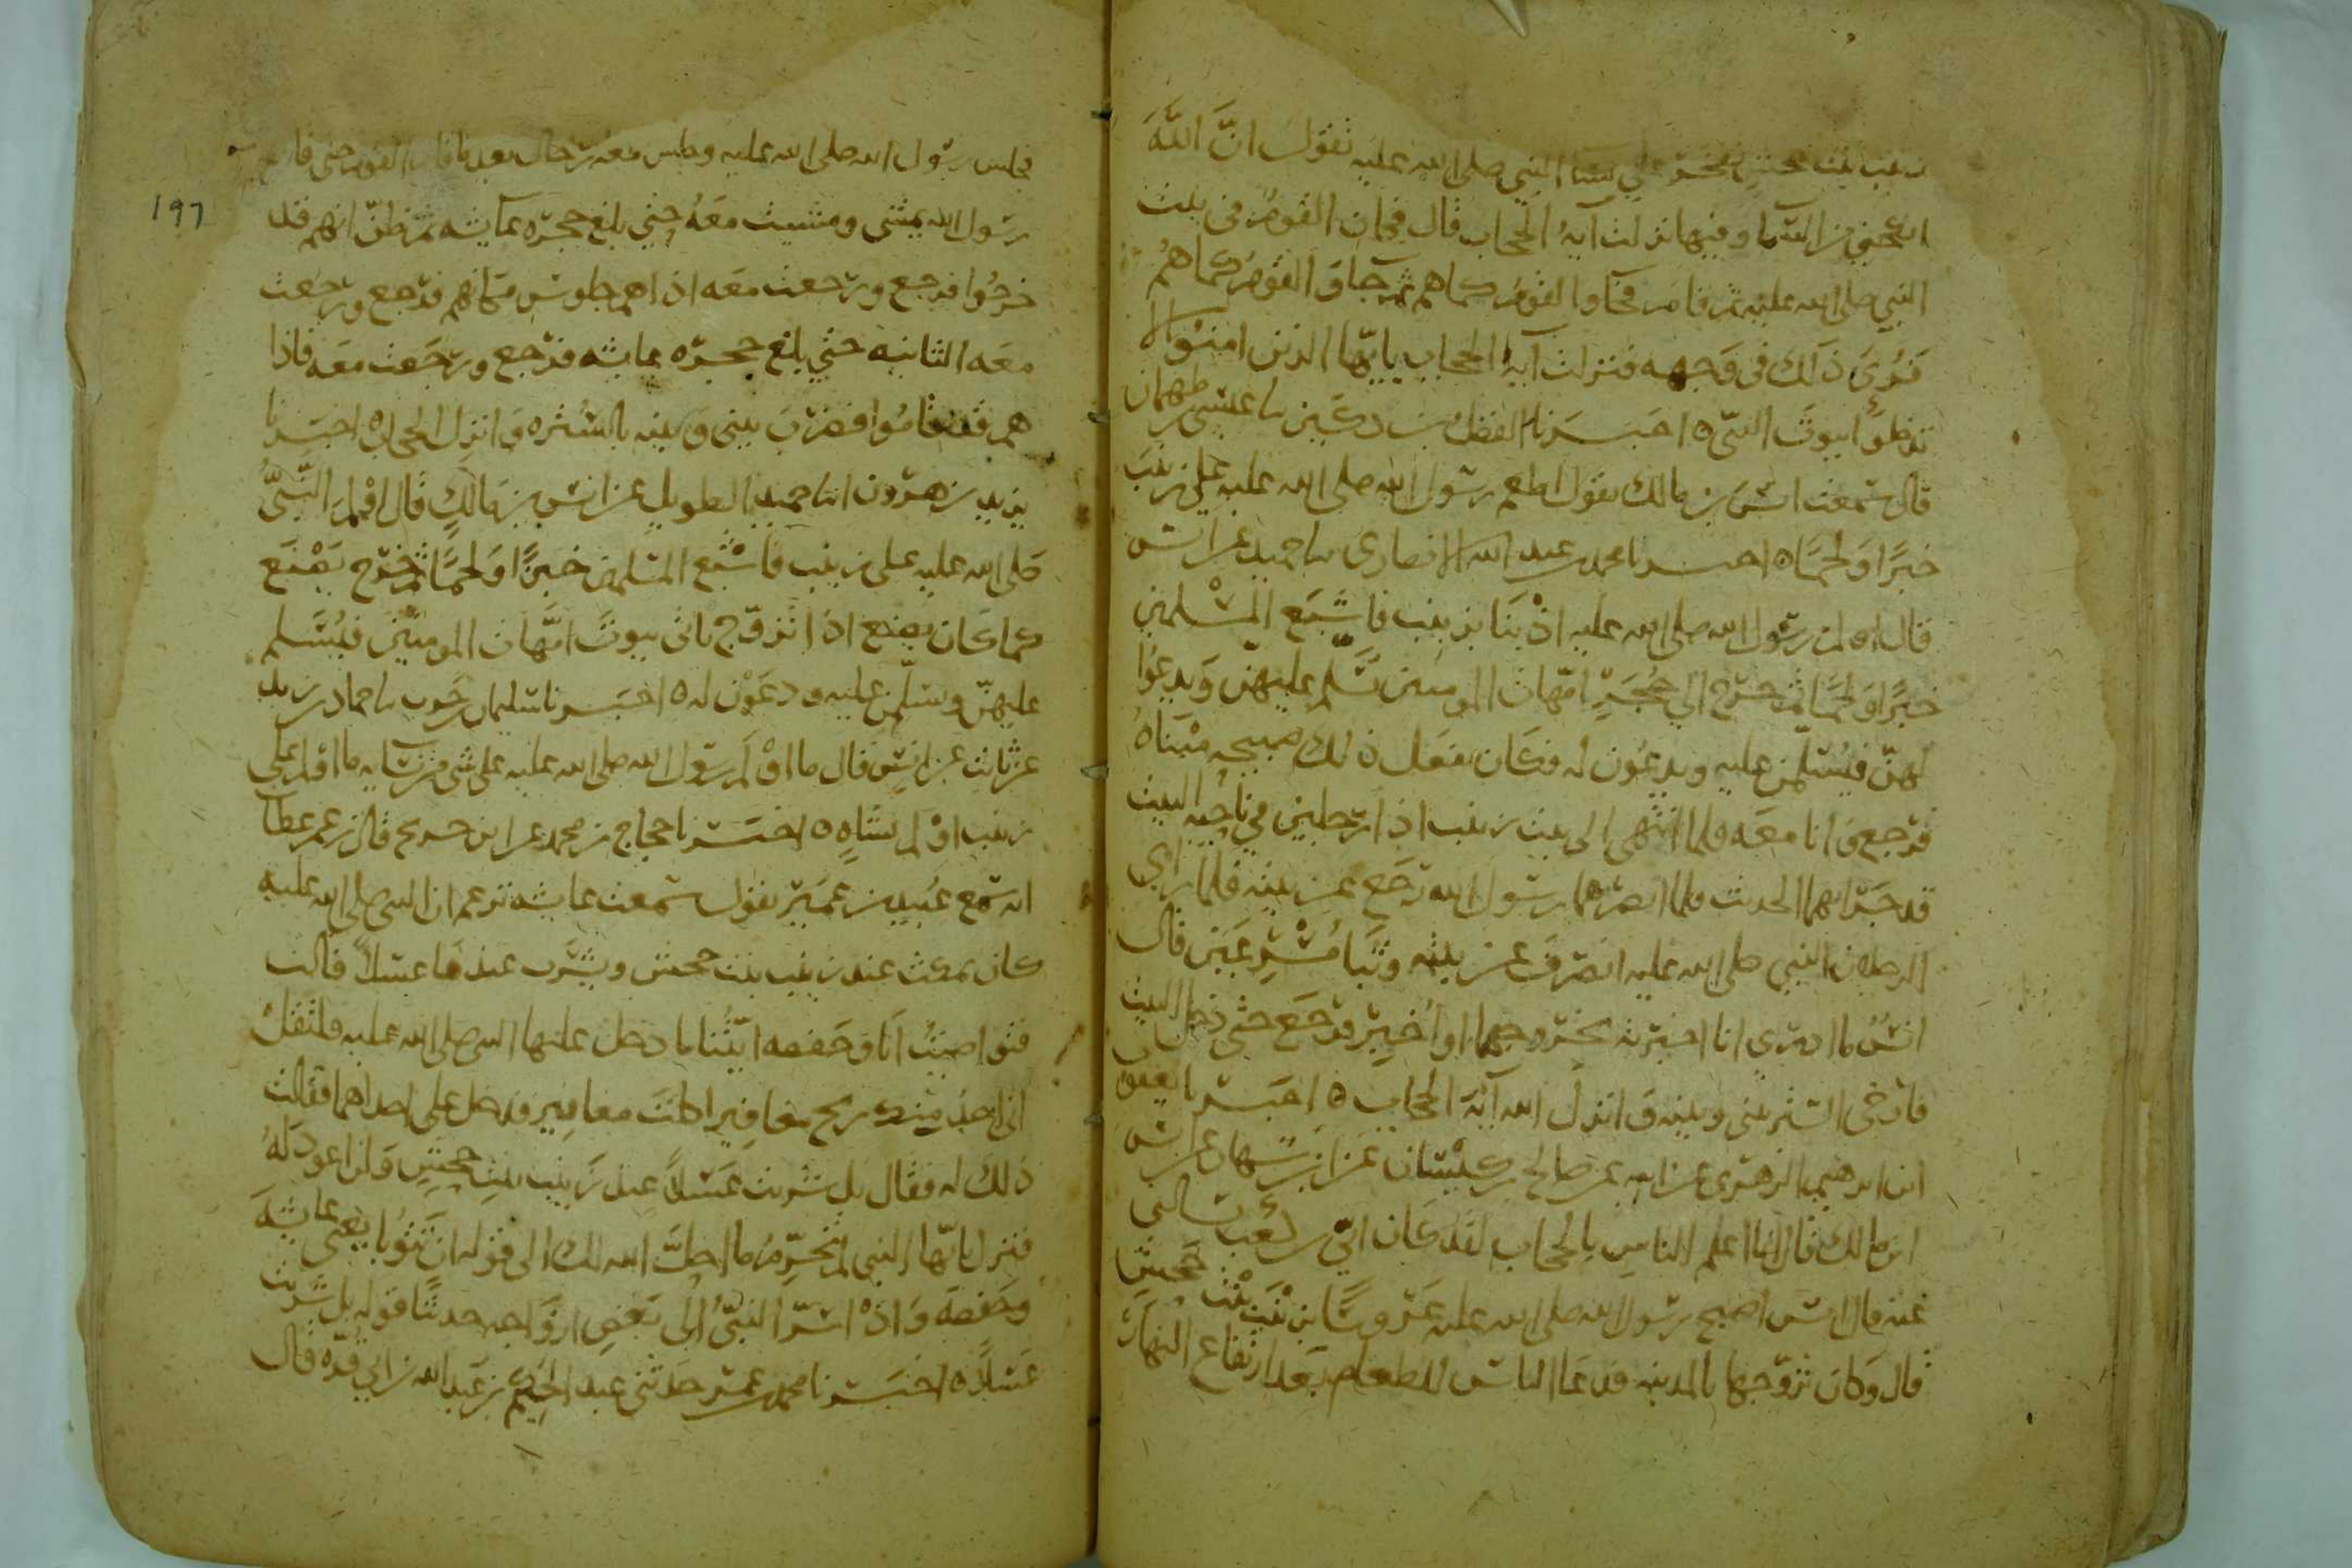 زينب بنت جحش تفخر على نسا النبي صلى الله عليه تقول ان الله
انكحني من السما وفيها نزلت آية الحجاب قال فكان القوم في بيت
النبي صلى الله عليه ثم قام فجا والقوم كما هم ثم جا والقوم كما هم
فرؤي ذلك في وجهه فنزلت آية الحجاب يايها الذين امنوا لا
تدخلوا بيوت النبي ٥ اخبرنا الفضل بن دكين نا عيسى بن طهمان
قال سمعت انس بن مالك يقول اطعم رسول الله صلى الله عليه على زينب
خبزا ولحما ٥ اخبرنا محمد بن عبد الله الانصاري نا حميد عن انس
قال اولم رسول الله صلى الله عليه اذ بنا بزينب فاشبع المسلمين
خبزا ولحما ثم خرج الى حجر امهات المومنين يسلم عليهن ويدعوا
لهن فيسلمن عليه ويدعون له فكان يفعل ذلك صبيحه مبناه
فرجع وانا معه فلما انتهى الى بيت زينب اذا رجلين في ناحيه البيت
قد جرا بهما الحديث فلما ابصرهما رسول الله رجع عن بيته فلما راى
الرجلان النبي صلى الله عليه انصرف عن بيته وثبا مسرعين قال
انس ما ادري انا اخبرته بخروجهما او اخبر فرجع حتى دخل البيت
فارخى الستر بيني وبينه وانزل الله آية الحجاب ٥ اخبرنا يعقوب
ابن ابرهيم الزهري عن ابيه عن صالح بن كيسان عن ابن شهاب عن انس
ابن مالك قال انا اعلم الناس بالحجاب لقد كان ابي بن كعب يسالني
عنه قال انس اصبح رسول الله صلى الله عليه عروسا بزينب بنت جحش
قال وكان تزوجها بالمدينه فدعا الناس للطعام بعد ارتفاع النهار
١٩٦
فجلس رسول الله صلى الله عليه وجلس معه رجال بعد ما قام القوم حتى قام
رسول الله يمشي ومشيت معه حتى بلغ حجره عايشه ثم ظن انهم قد
خرجوا فرجع ورجعت معه اذا هم جلوس مكانهم فرجع ورجعت
معه الثانيه حتى بلغ حجره عايشه فرجع ورجعت معه فاذا
هم قد قاموا فضرب بيني وبينه بالستره وانزل الحجاب ٥ اخبرنا
يزيد بن هرون انا حميد الطويل عن انس بن مالك قال اولم النبي
صلى الله عليه على زينب فاشبع المسلمين خبزا ولحما ثم خرج يصنع
كما كان يصنع اذا تزوج ياتي بيوت امهات المومنين فيسلم
عليهن وسلمن عليه ودعون له ٥ اخبرنا سليمان بن حرب نا حماد بن زيد
عن ثابت عن انس قال ما اولم رسول الله صلى الله عليه على شي من نسايه ما اولم على
زينب اولم بشاه ٥ اخبرنا حجاج بن محمد عن ابن جريج قال زعم عطا
انه سمع عبيد بن عمير يقول سمعت عايشه تزعم ان النبي صلى الله عليه
كان يمكث عند زينب بنت جحش ويشرب عندها عسلا قالت
فتواصيت انا وحفصه ايتنا ما دخل عليها النبي صلى الله عليه فلتقل
اني اجد منك ريح مغافير اكلت مغافير فدخل على احداهما فقالت
ذلك له فقال بل شربت عسلا عند زينب بنت جحش ولن اعود له
فنزل يايها النبي لم تحرم ما احل الله لك الى قوله ان تتوبا يعني عايشه
وحفصه واذ اسر النبي الى بعض ازواجه حديثا قوله بل شربت
عسلا ٥ اخبرنا محمد بن عمر حدثني عبد الحكيم بن عبد الله بن ابي فروه قال